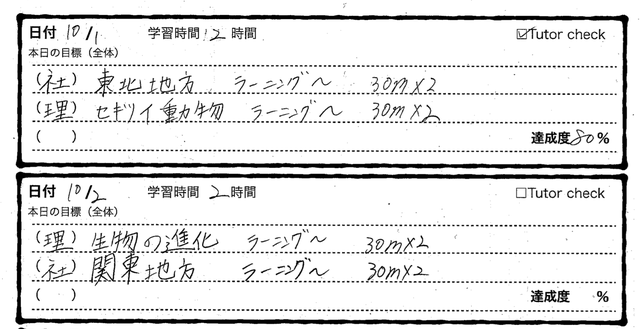 日付 10/1 学習時間 2 時間 ☑Tutor check
本日の目標（全体）
（社）東北地方 ラーニング〜 30m×2
（理）セキツイ動物 ラーニング〜 30m×2
（ ） 達成度80%
日付 10/2 学習時間 2 時間 □Tutor check
本日の目標（全体）
（理）生物の進化 ラーニング〜 30m×2
（社）関東地方 ラーニング〜 30m×2
（ ） 達成度 %